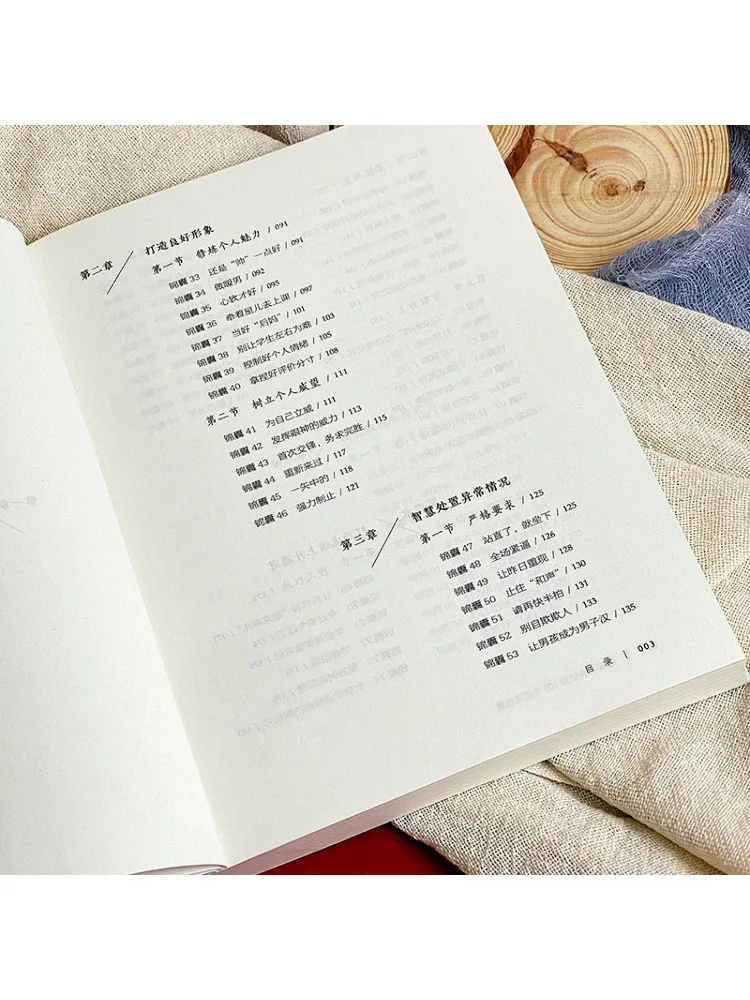 第二章 打造良好形象
第一节 修炼个人魅力 / 091
锦囊 33 还是“帅”一点好 / 091
锦囊 34 做暖男 / 092
锦囊 35 心软才好 / 095
锦囊 36 牵着星儿去上课 / 097
锦囊 37 当好“后妈” / 101
锦囊 38 别让学生左右为难 / 103
锦囊 39 控制好个人情绪 / 105
锦囊 40 拿捏好评价分寸 / 108
第二节 树立个人威望 / 111
锦囊 41 为自己立威 / 111
锦囊 42 发挥眼神的威力 / 113
锦囊 43 首次交锋，务求完胜 / 115
锦囊 44 重新来过 / 117
锦囊 45 一矢中的 / 118
锦囊 46 强力制止 / 121
第三章 智慧处置异常情况
第一节 严格要求 / 125
锦囊 47 站直了，就坐下 / 125
锦囊 48 全场紧逼 / 126
锦囊 49 让昨日重现 / 128
锦囊 50 止住“和声” / 130
锦囊 51 请再快半拍 / 131
锦囊 52 别自欺欺人 / 133
锦囊 53 让男孩成为男子汉 / 135
目 录 | 003